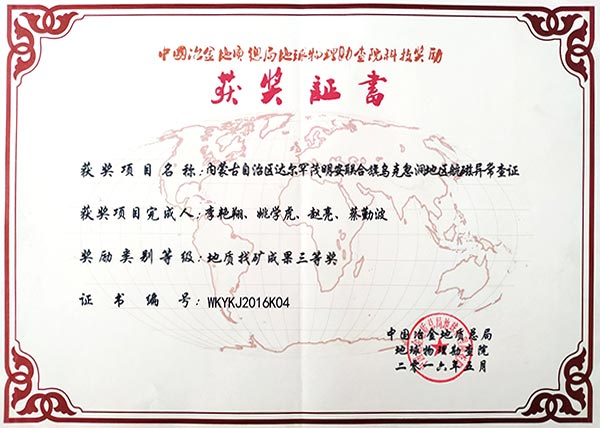 中國冶金地质總局地球物理勘查院科技奖励
获奖証書
获奖项目名称:内蒙古自治区达尔罕茂明安联合旗乌克忽洞地区航磁异常查证
获奖项目完成人:李艳翔、姚学虎、赵亮、蔡勤波
奖励类别等级:地质找矿成果三等奖
证书编号:WKYKJ2016K04
中国冶金地质总局
地球物理勘查院
二〇一六年五月